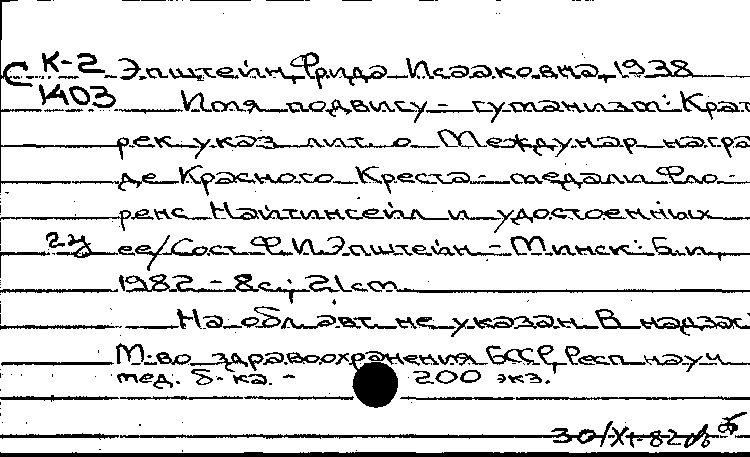 С К-2 Эпштейн, Фрида Исааковна, 1938
1403 Имя подвигу - гуманизм: Крат
рек указ лит. о Междунар награ
де Красного Креста - медали Фло-
ренс Найтингейл и удостоенных
ее/Сост Ф.И.Эпштейн - Минск: Б.и.,
1982 - 8с.; 21см
На обл авт. не указан В надзаг
М-во здравоохранения БССР, Респ науч
мед. б-ка. - 200 экз.
30/XI-82